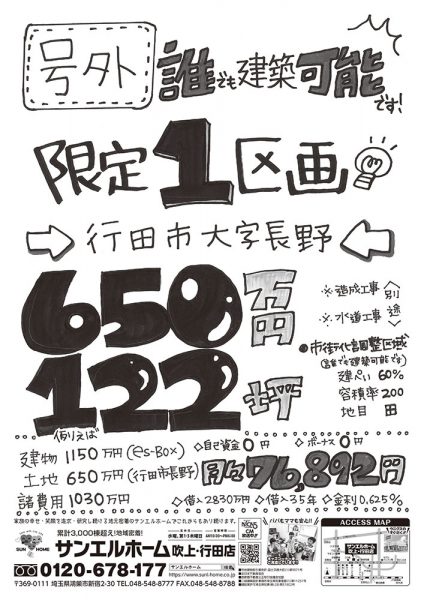 号外
誰でも建築可能です!
限定1区画
行田市大字長野
650万円
122坪
※造成工事
※水道工事
〈別途〉
●市街化調整区域
(誰でも建築可能です)
建ぺい 60%
容積率 200
地目 田
例えば
建物 1150万 (es-Box)
土地 650万 (行田市長野)
諸費用 1030万
◇自己資金0円 ◇ボーナス0円
月々76,892円
◇借入2830万円 ◇借入35年 ◇金利0.625%
家族の幸せ・笑顔を追求・研究し続ける地元密着のサンエルホームがこれからもあり続けます。
SUN HOME
累計3,000棟超え!地域密着!
サンエルホーム 吹上・行田店
0120-678-177
サンエルホーム
〒369-0111 埼玉県鴻巣市新宿2-30 TEL.048-548-8777 FAX.048-548-8788
ACCESS MAP
サンエルホーム
吹上・行田店